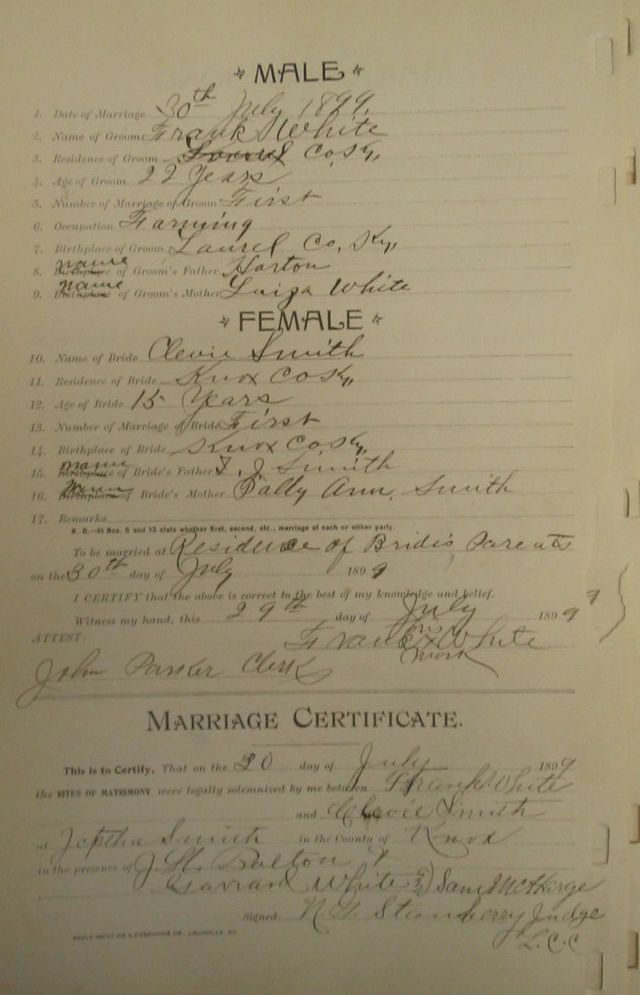 MALE
1. Date of Marriage 30th July 1899.
2. Name of Groom Frank White
3. Residence of Groom Laurel Co, Ky,
4. Age of Groom 22 Years
5. Number of Marriage of Groom First
6. Occupation Farming
7. Birthplace of Groom Laurel Co, Ky,
8. Birthplace name of Groom's Father Horton
9. Birthplace name of Groom's Mother Luiza White
FEMALE
10. Name of Bride Clevie Smith
11. Residence of Bride Knox Co Ky,
12. Age of Bride 15 Years
13. Number of Marriage of Bride First
14. Birthplace of Bride Knox Co Ky,
15. Birthplace name of Bride's Father J. J Smith
16. Birthplace name of Bride's Mother Sally Ann, Smith
17. Remarks
N. B.—At Nos. 5 and 13 state whether first, second, etc., marriage of each or either party.
To be married at Residence of Brids Parents
on the 30th day of July 1899
I CERTIFY that the above is correct to the best of my knowledge and belief.
Witness my hand, this 29th day of July 1899
ATTEST: Frank his x mark White
John Parker Clerk
MARRIAGE CERTIFICATE.
This is to Certify, That on the 30 day of July 1899
the RITES OF MATRIMONY were legally solemnized by me between Frank White
and Clevie Smith
at Jeptha Smith in the County of Knox
in the presence of J. H.
Garrard White &) Sam McHarge
Signed: N. T. Stanberry Judge
L.C.C